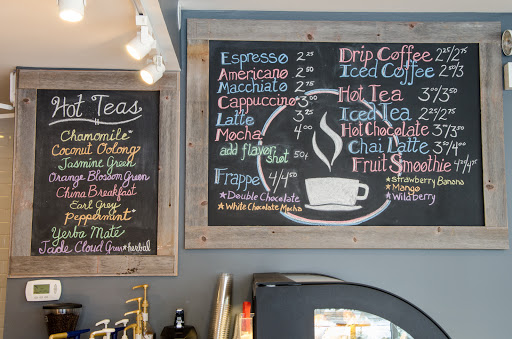 Hot Teas
Chamomile*
Coconut Oolong
Jasmine Green
Orange Blossom Green
China Breakfast
Earl Grey
Peppermint*
Yerba Maté
Jade Cloud Green *herbal
Espresso 2.25
Americano 2.50
Macchiato 2.75
Cappuccino 3.00
Latte 3.75
Mocha 4.00
add flavor shot 50¢
Frappe 4/4.50
*Double Chocolate
*White Chocolate Mocha
Drip Coffee 2.25/2.75
Iced Coffee 2.50/3
Hot Tea 3.00/3.50
Iced Tea 2.25/2.75
Hot Chocolate 3.00/3.50
Chai Latte 3.50/4
Fruit Smoothie
*strawberry Banana
*Mango
*Wildberry